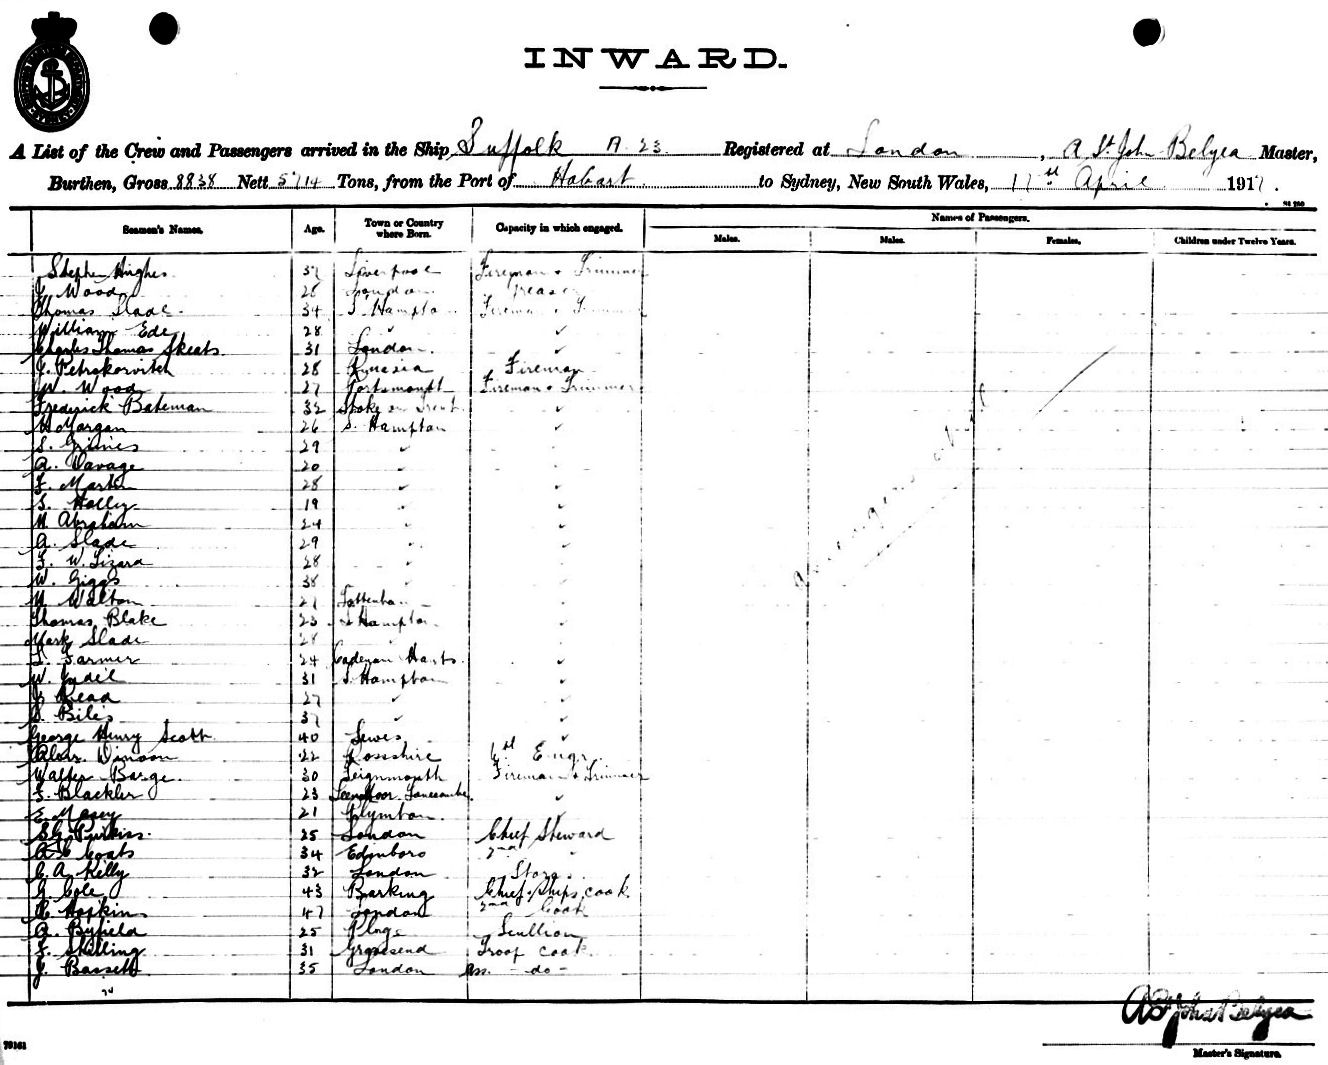 INWARD.
A List of the Crew and Passengers arrived in the Ship Suffolk A.23 Registered at London, A St John Belyea Master,
Burthen, Gross 8838 Nett 5714 Tons, from the Port of Hobart to Sydney, New South Wales, April 1917.
Seamen's Names. Age. Town or Country where Born. Capacity in which engaged. Names of Passengers.
Males. Males. Females. Children under Twelve Years.
Stephen Hughes. 37 Liverpool Fireman & Trimmer
J. Wood 28 London Greaser
Thomas Slade. 34 S. Hampton Fireman & Trimmer
William Ede 28 ✓ ✓
Charles Thomas Skeats. 31 London. ✓
J. Petrokovitch 28 Russia Fireman
W. Wood 27 Portsmouth Fireman & Trimmer
Frederick Bateman 32 Stoke on Trent ✓
Morgan 26 S. Hampton ✓
S. Grimes 29 ✓ ✓
A. Vavage 20 ✓ ✓
F. Martin 28 ✓ ✓
S. Holley 19 ✓ ✓
Abraham 24 ✓ ✓
A. Slade 29 ✓ ✓
F. W. Lizard 28 ✓ ✓
W. Giggs 38 ✓ ✓
Walton 27 Tottenham ✓
Thomas Blake 23 S Hampton ✓
Mark Slade 28 ✓
Farmer 24 Hants. ✓
W. 31 S. Hampton ✓
J. Read 27 ✓ ✓
S. Biles 37 ✓ ✓
George Henry Scott 40 Lewes ✓
22 Rosshire 6th Engr.
Walter Barge. 30 Teignmouth Fireman & Trimmer
F. Blackler 23 ✓
E. Macey 21 Plympton. ✓
S G Purkiss. 25 London Chief Steward
Coats 34 Edinboro 2nd "
C. A. Kelly 32 London Store
G. Cole 43 Barking Chief Ships cook
Hopkins 47 London 2nd Cook
A. Byfield 25 Scullion
F. Skilling 31 Gravesend Troop cook
J. Bassett 35 London Ass. - do -
A St John Belyea
Master's Signature.